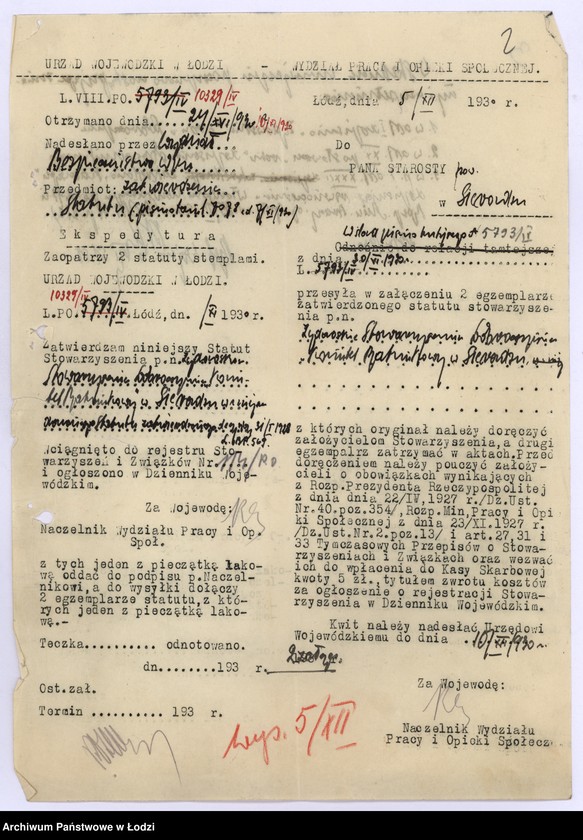 2
URZĄD WOJEWÓDZKI W ŁODZI - WYDZIAŁ PRACY I OPIEKI SPOŁECZNEJ.
L.VIII.PO. 5793/IV 10329/IV
Otrzymano dnia
Nadesłano przez
Bezpieczeństwa
Przedmiot: zatwierdzenie
Statutu
Ekspedytura
Zaopatrzy 2 statuty stemplami.
URZĄD WOJEWÓDZKI W ŁODZI.
10329/IV
L.PO. 5793/IV. Łódź, dn. /XI 1930 r.
Zatwierdzam niniejszy Statut
Stowarzyszenia p.n. Żydowskie
Stowarzyszenie Dobroczynne Komi-
tet Ratunkowy w Sieradzu
Wciągnięto do rejestru Sto-
warzyszeń i Związków Nr.
i ogłoszono w Dzienniku Woje-
wódzkim.
Za Wojewodę:
Naczelnik Wydziału Pracy i Op.
Społ.
z tych jeden z pieczątką lako-
wą oddać do podpisu p.Naczel-
nikowi, a do wysyłki dołączy
2 egzemplarze statutu, z któ-
rych jeden z pieczątką lako-
wą.-
Teczka.......... odnotowano.
dn........193 r.
Ost.zał.
Termin .......... 193 r.
Łódź, dnia 5/XII 1930 r.
Do
PANA STAROSTY pow.
w Sieradzu
5793/IV
Odnośnie do relacji tamtejszej
z dnia 30/VI 1930r.
L. 5793/IV
przesyła w załączeniu 2 egzemplarze
zatwierdzonego statutu stowarzysze-
nia p.n.
Żydowskie Stowarzyszenie Dobroczynne
Komitet Ratunkowy w Sieradzu
z których oryginał należy doręczyć
założycielom Stowarzyszenia, a drugi
egzemplrz zatrzymać w aktach. Przed
doręczeniem należy pouczyć założy-
cieli o obowiązkach wynikających
z Rozp.Prezydenta Rzeczypospolitej
z dnia dnia 22/IV,1927 r./Dz.Ust.
Nr.40.poz.354/, Rozp.Min,Pracy i Opi
ki Społecznej z dnia 23/XI.1927 r.
/Dz.Ust.Nr.2.poz.13/ i art.27,31 i
33 Tymczasowych Przepisów o Stowa-
rzyszeniach i Związkach oraz wezwać
ich do wpłacenia do Kasy Skarbowej
kwoty 5 zł., tytułem zwrotu kosztów
za ogłoszenie o rejestracji Stowa-
rzyszenia w Dzienniku Wojewódzkim.
Kwit należy nadesłać Urzędowi
Wojewódzkiemu do dnia 10/XII/930r.
2 załącz.
Za Wojewodę:
Naczelnik Wydziału
Pracy i Opieki Społecz
wysł. 5/XII
Archiwum Państwowe w Łodzi